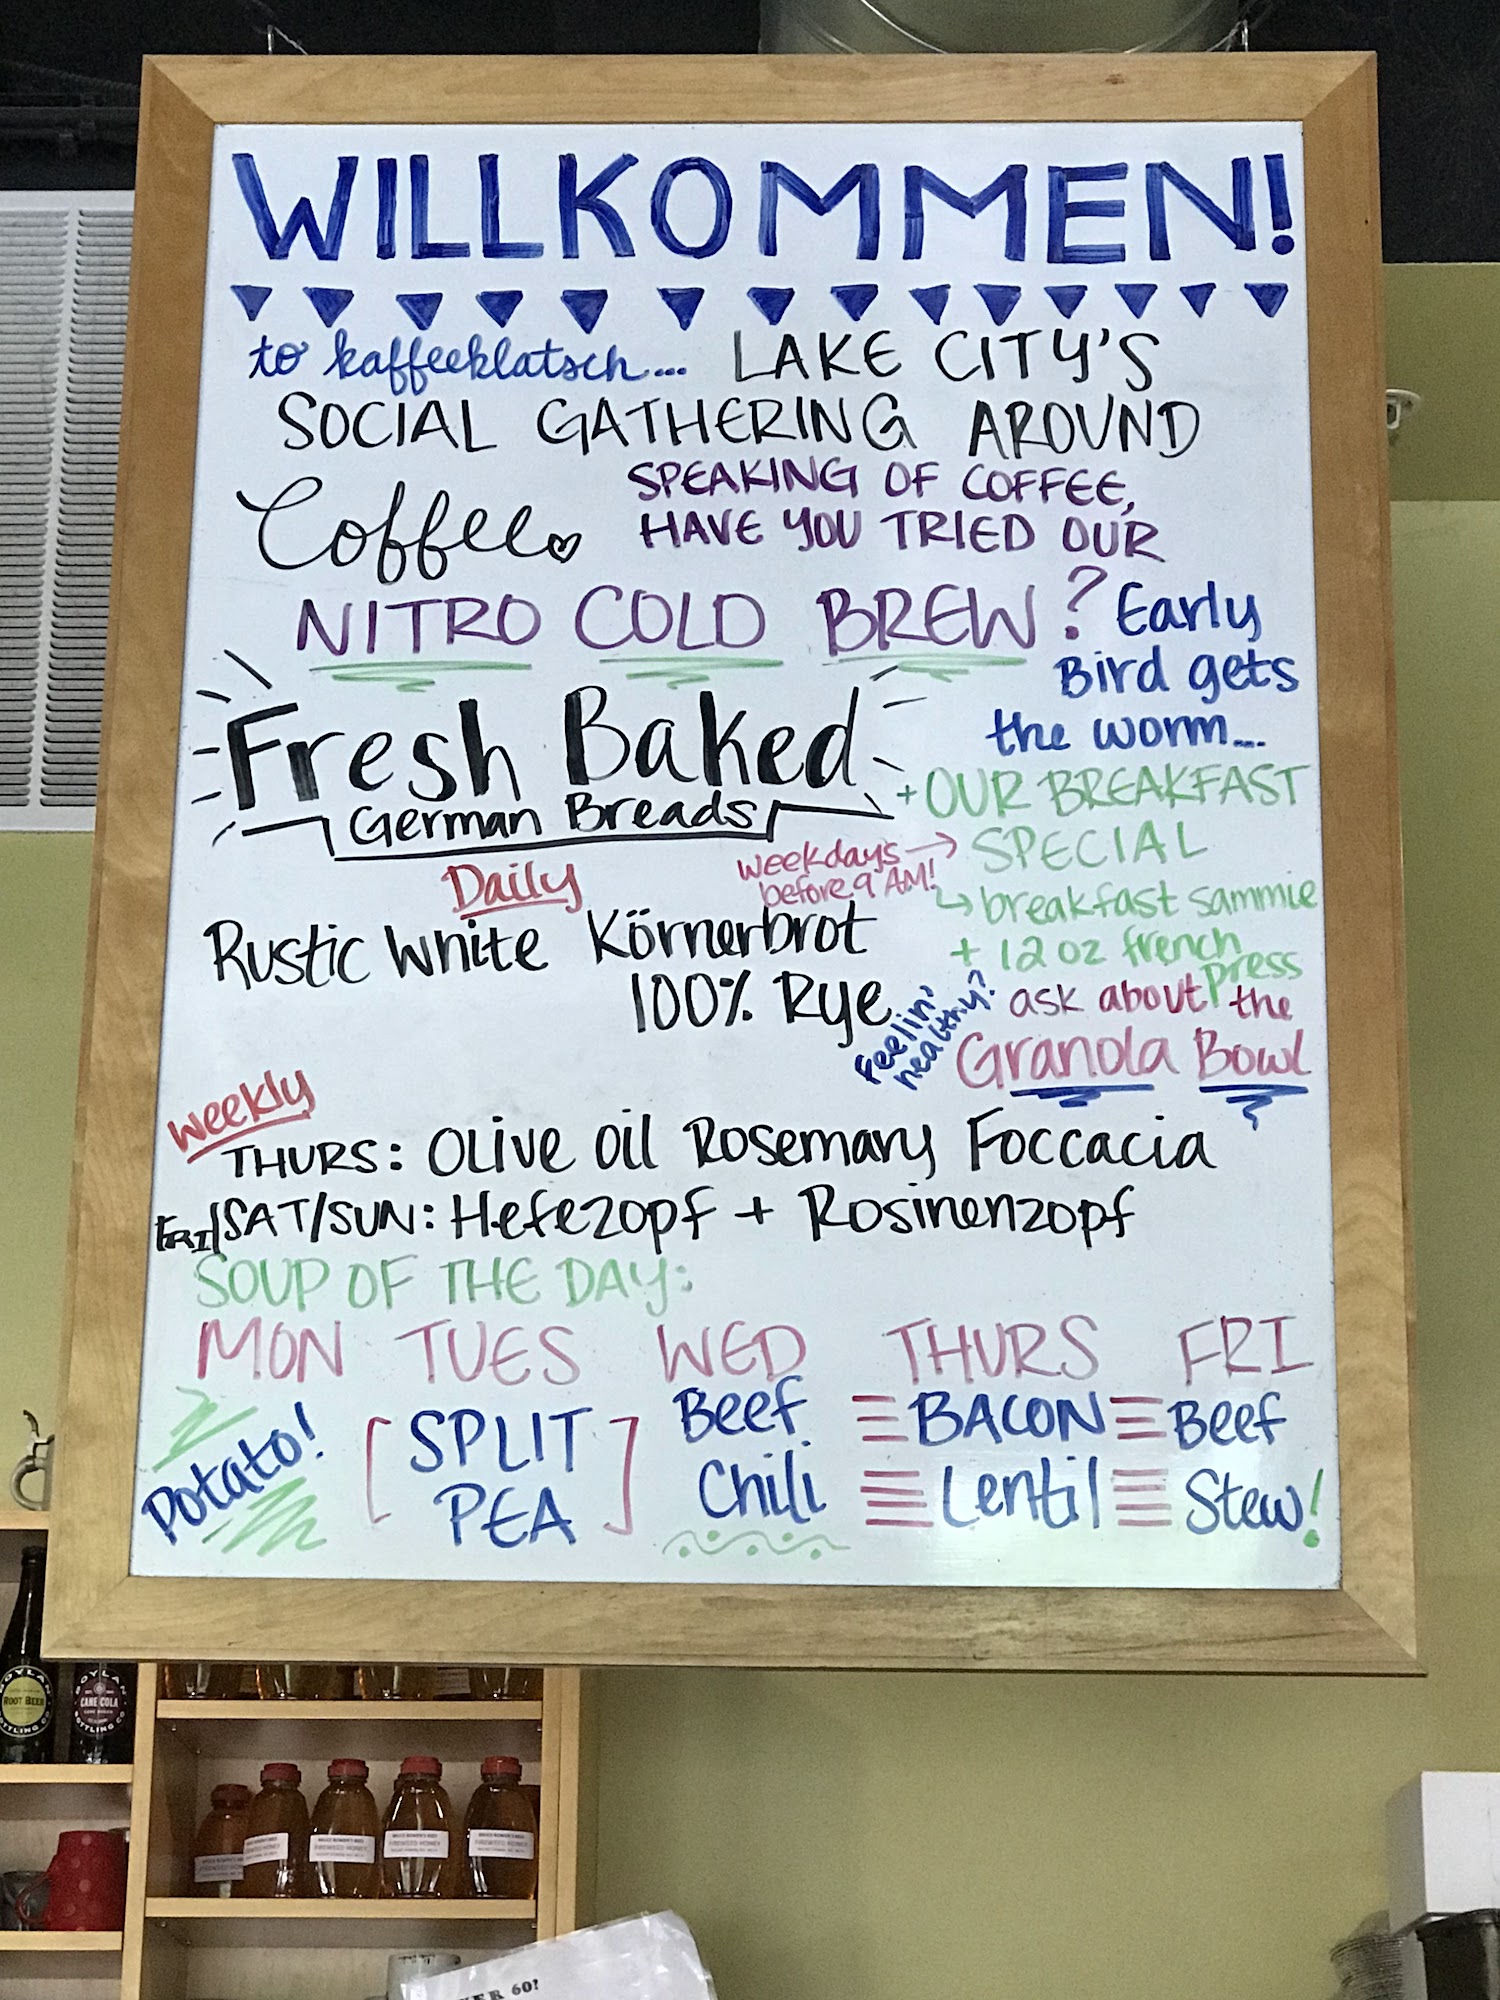 WILLKOMMEN!
to kaffeeklatsch... LAKE CITY'S
SOCIAL GATHERING AROUND
Coffee
SPEAKING OF COFFEE,
HAVE YOU TRIED OUR
NITRO COLD BREW?
Early
Bird gets
the worm...
+ OUR BREAKFAST
SPECIAL
weekdays
before 9 AM!
breakfast sammie
+ 12 oz french
press
Feelin'
healthy?
ask about the
Granola Bowl
Fresh Baked
German Breads
Daily
Rustic White Körnerbrot
100% Rye
Weekly
THURS: Olive Oil Rosemary Foccacia
FRI/SAT/SUN: Hefezopf + Rosinenzopf
SOUP OF THE DAY:
MON TUES WED THURS FRI
Potato!
SPLIT
PEA
Beef
Chili
BACON
Lentil
Beef
Stew!
BOYLAN
ROOT BEER
BOTTLING CO
BOYLAN
CANE COLA
BOTTLING CO
60?